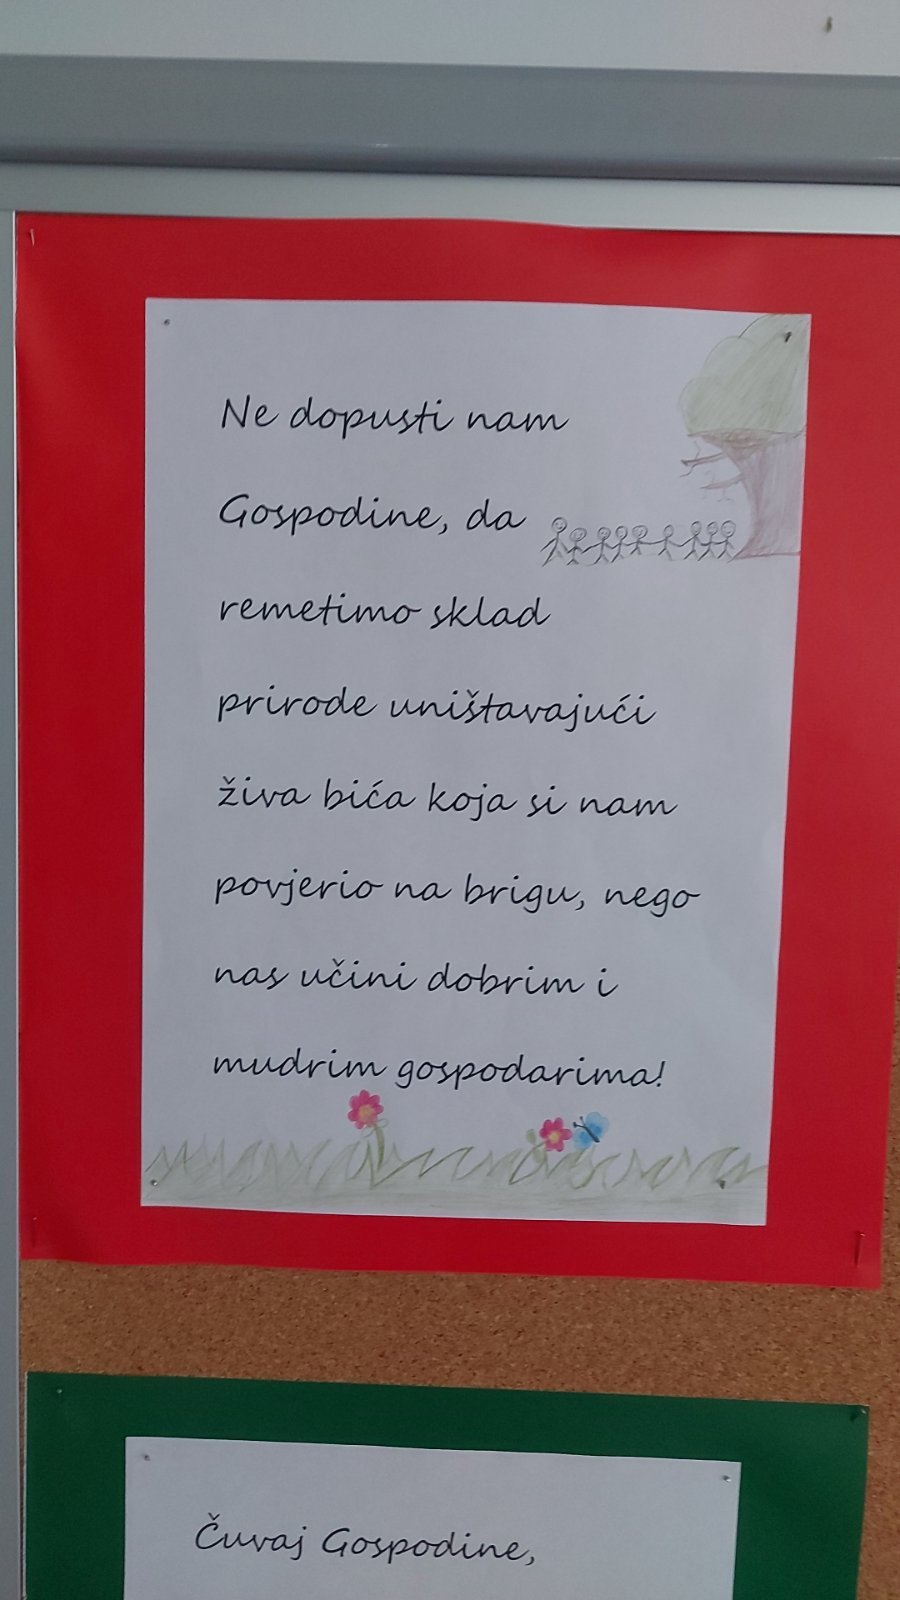 Ne dopusti nam
Gospodine, da
remetimo sklad
prirode uništavajući
živa bića koja si nam
povjerio na brigu, nego
nas učini dobrim i
mudrim gospodarima!
Čuvaj Gospodine,